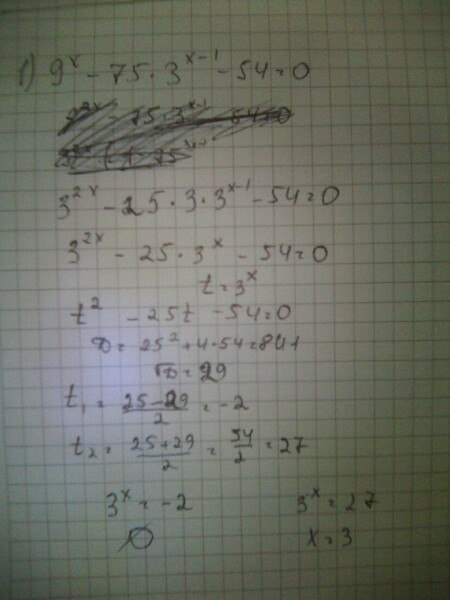 1) 9^x - 75 · 3^(x-1) - 54 = 0
3^(2x) - 25 · 3 · 3^(x-1) - 54 = 0
3^(2x) - 25 · 3^x - 54 = 0
t = 3^x
t^2 - 25t - 54 = 0
D = 25^2 + 4 · 54 = 841
√D = 29
t₁ = (25-29)/2 = -2
t₂ = (25+29)/2 = 54/2 = 27
3^x = -2 3^x = 27
∅ x = 3